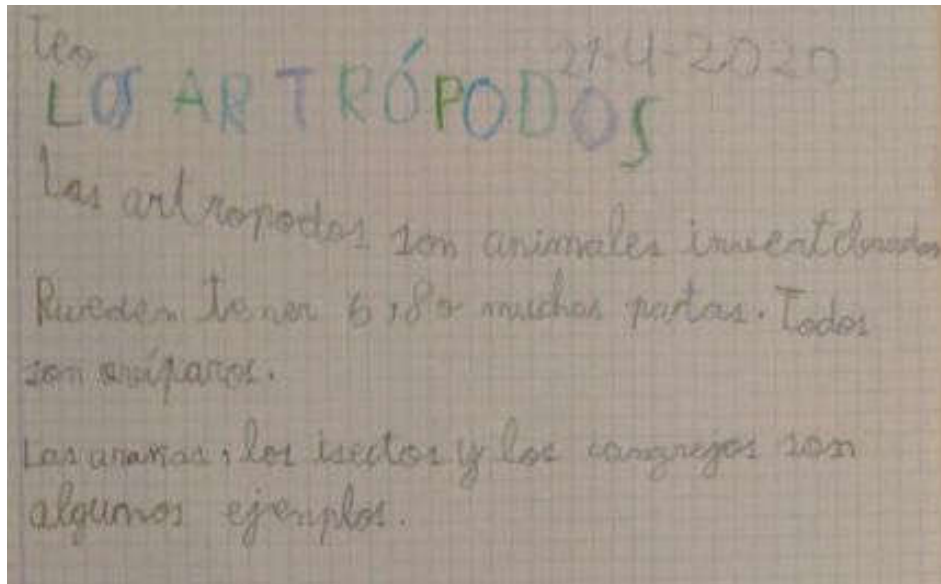 Teo 21-4-2020
LOS ARTRÓPODOS
Los artropodos son animales invertebrados
Pueden tener 6, 8 o muchas patas. Todos
son ovíparos.
Las arañas, los isectos y los cangrejos son
algunos ejemplos.